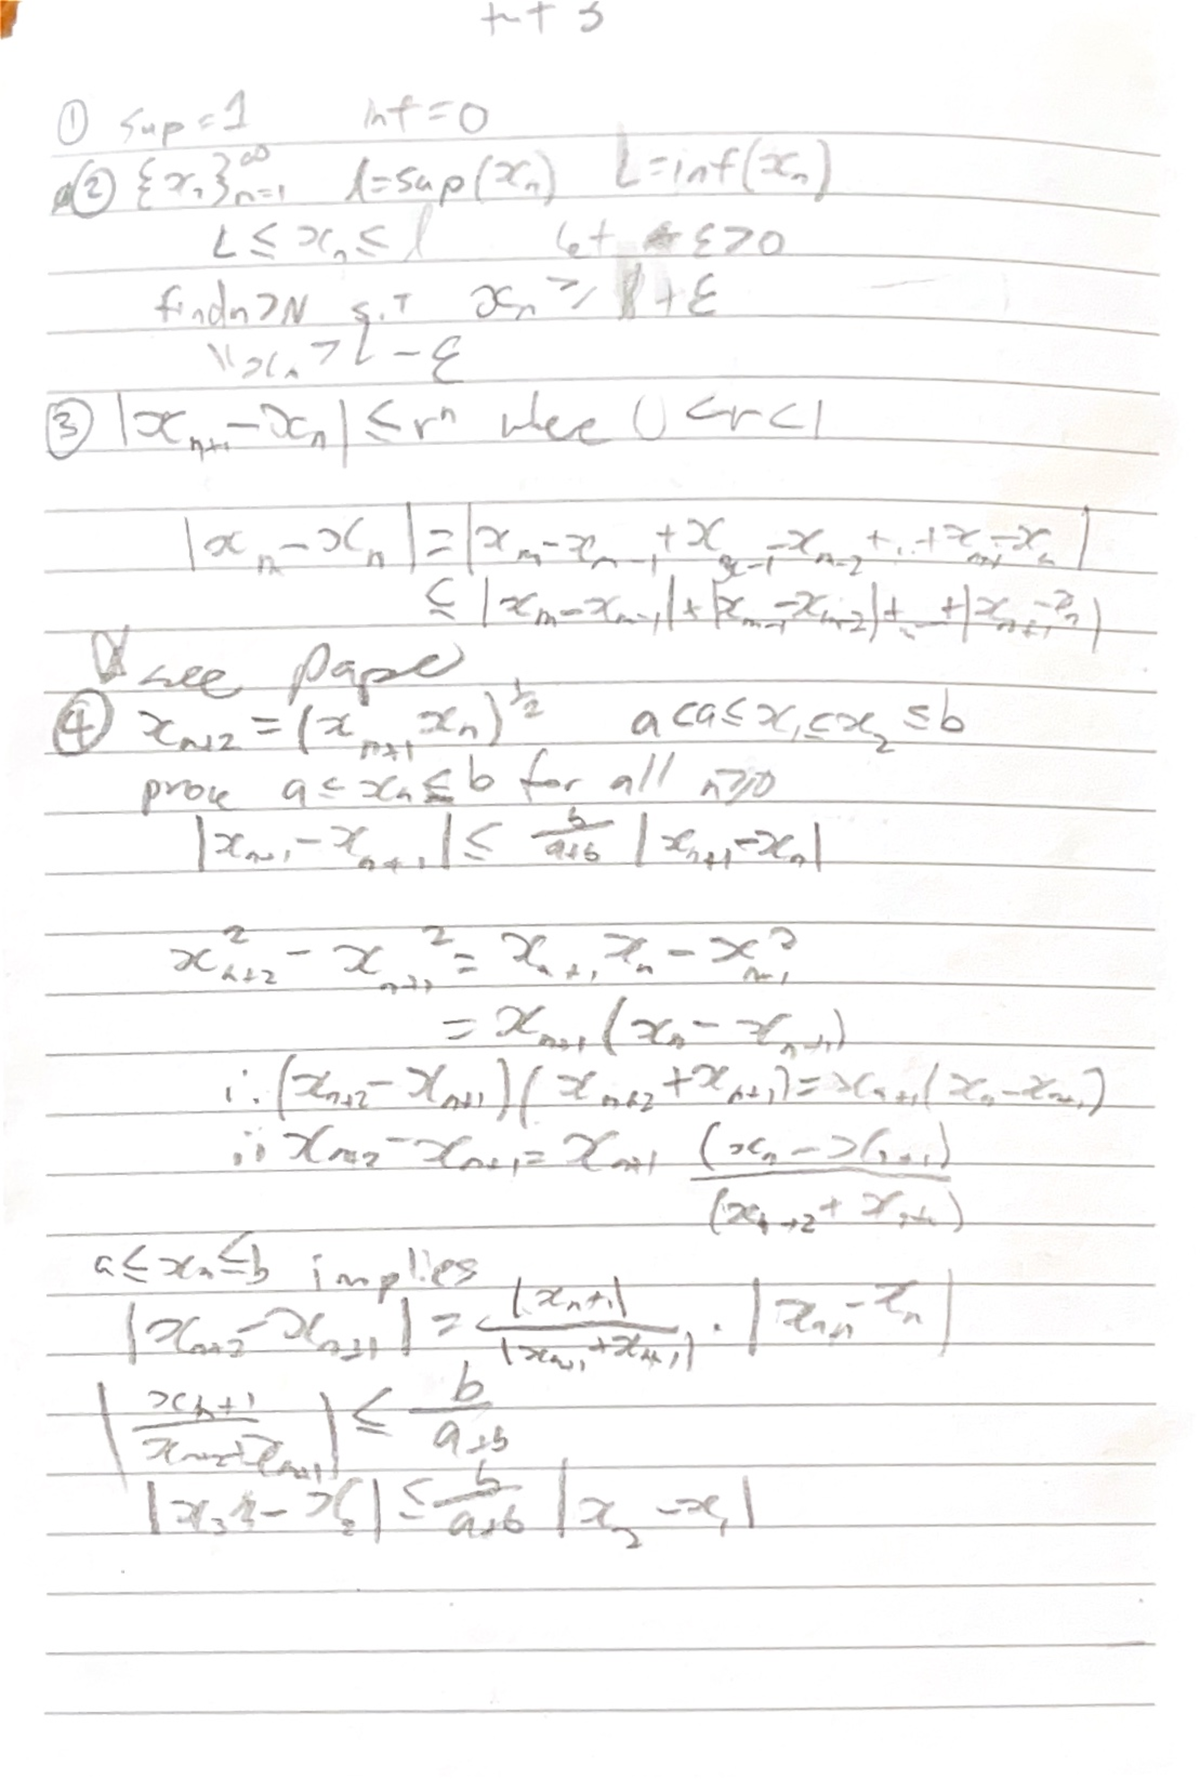 ① sup = 1 inf = 0
② {xₙ}ₙ₌₁^∞ l = sup(xₙ) L = inf(xₙ)
L ≤ xₙ ≤ l ε > 0
find n > N s.t xₙ ≥ l + ε
" xₙ > l - ε
③ |xₙ₊₁ - xₙ| ≤ rⁿ where 0 < r < 1
|xₘ - xₙ| = |xₘ - xₘ₋₁ + xₘ₋₁ - xₘ₋₂ + .. + xₙ₊₁ - xₙ|
≤ |xₘ - xₘ₋₁| + |xₘ₋₁ - xₘ₋₂| + ... + |xₙ₊₁ - xₙ|
see paper
④ xₙ₊₂ = (xₙ₊₁ xₙ)^½ a < a ≤ x₁ ≤ x₂ ≤ b
prove a ≤ xₙ ≤ b for all n ≥ 0
|xₙ₊₁ - xₙ₊₁| ≤ b/(a+b) |xₙ₊₁ - xₙ|
xₙ₊₂² - xₙ₊₁² = xₙ₊₁ xₙ - xₙ₊₁²
= xₙ₊₁ (xₙ - xₙ₊₁)
∴ (xₙ₊₂ - xₙ₊₁)(xₙ₊₂ + xₙ₊₁) = xₙ₊₁(xₙ - xₙ₊₁)
∴ xₙ₊₂ - xₙ₊₁ = xₙ₊₁ (xₙ - xₙ₊₁)/(xₙ₊₂ + xₙ₊₁)
a ≤ xₙ ≤ b implies
|xₙ₊₂ - xₙ₊₁| = |xₙ₊₁|/|xₙ₊₁ + xₙ₊₁| . |xₙ₊₁ - xₙ|
|xₙ₊₁/(xₙ₊₂ + xₙ₊₁)| ≤ b/(a+b)
|x₃ - x₂| ≤ b/(a+b) |x₂ - x₁|